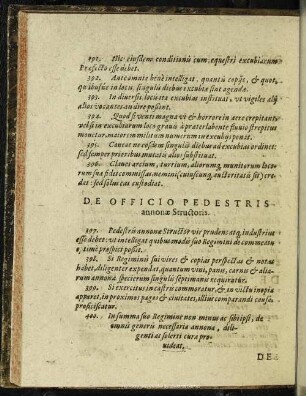 391. Hic eiusdem conditionis cum equestri excubiarum
Præfecto esse debet.
392. Ante omnia benè intelligat, quantis copijs, & quot,
quibusue in locis, singulis diebus excubiæ sint agendæ.
393. In diuersis locis ita excubias instituat, vt vigiles alij
alios vocantes audire possint.
394. Quod si venti magna vi & horrore in aere crepitant,
vel si in excubiarum loco graui à præterlabente fluuio strepitus
, maiorem militum numerum in excubijs ponat.
395. Caueat ne eosdem singulis diebus ad excubias ordinet:
sed semper prioribus mutatis alios substituat.
396. Claues arcium, turrium, aliorumq; munitorum loco
rum suæ fidei commissas, nemini (cuiuscunq; auctoritatis sit) cre
det: sed solus eas custodiat.
DE OFFICIO PEDESTRIS
annonæ Structoris.
397. Pedestris annonæ Structor vir prudens atq; industrius
esse debet: vt intelligat quibus modis suo Regimini de commeatu
, tempestiuè prospici possit.
398. Si Regiminis sui vires & copias perspectas & notas
habet, diligenter expendat, quantum vini, panis, carnis & alia
rum annonæ specierum singulis septimanis requiratur.
399. Si exercitus in castris commoretur, & in victu inopia
appareat, in proximos pagos & ciuitates, illius comparandi causa,
proficiscatur.
400. In summa suo Regimine non minus ac sibi ipsi, de
omnis generis necessaria annona, dili-
genti ac solerti cura pro-
uideat.
DE